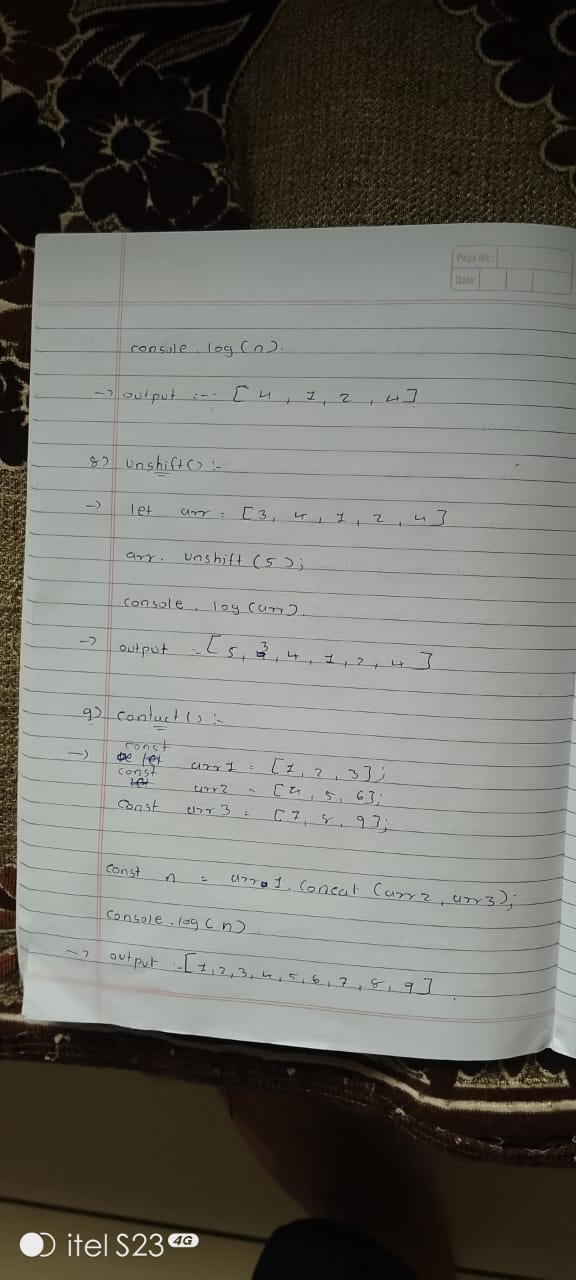 Page No.:
Date:
console.log(n).
→ output :-- [4, 1, 2, 4]
8) unshift() :-
→ let arr = [3, 4, 1, 2, 4]
arr. unshift (5);
console. log(arr)
→ output :- [5, 3, 4, 1, 2, 4]
9) contact() :-
const
→ let arr1 = [1, 2, 3];
const
let arr2 = [4, 5, 6];
const arr3 = [7, 8, 9];
const n = arr1.concat (arr2, arr3);
console.log(n)
→ output :- [1, 2, 3, 4, 5, 6, 7, 8, 9]
itel S23 4G